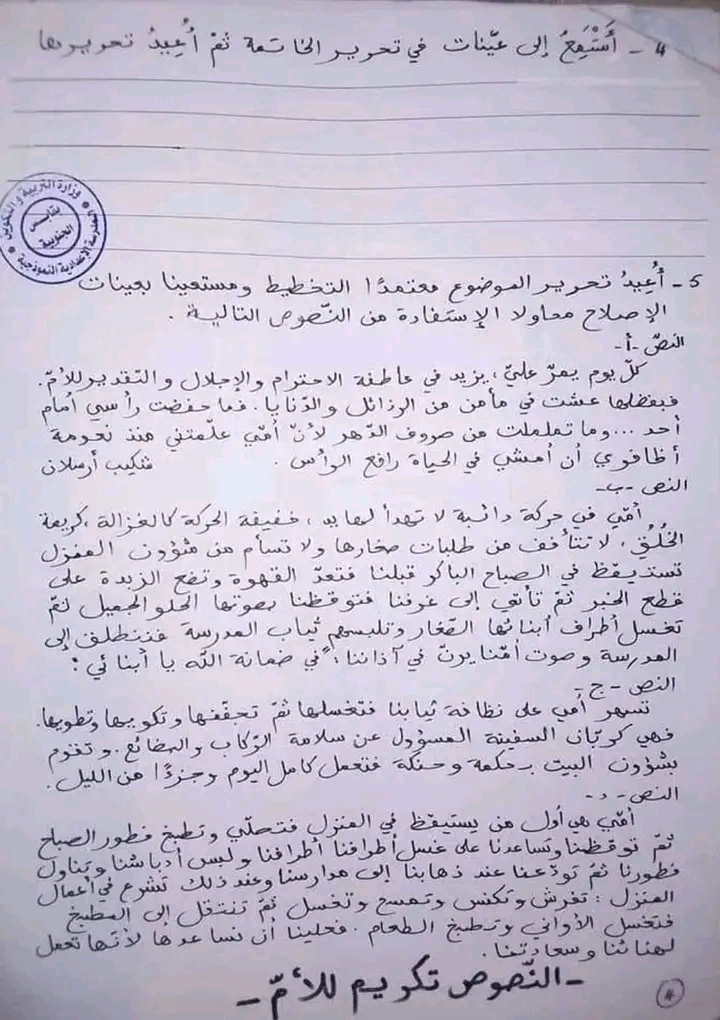 4 - أَسْتَمِعُ إلى عيّنات في تحرير الخاتمة ثمّ أُعِيدُ تحريرها
وزارة التربية والتكوين
المدرسة الإعدادية النموذجية
بقابس
الجنوبية
5 - أُعِيدُ تحرير الموضوع معتمدًا التخطيط ومستعينا بعينات
الإصلاح محاولا الإستفادة من النّصوص التالية .
النصّ -أ-
كلّ يوم يمرّ عليّ، يزيد في عاطفة الاحترام والإجلال والتقدير للأمّ.
فبفضلها عشت في مأمن من الرذائل والدّنايا. فما خفضت رأسي أمام
أحد ... وما تململت من صروف الدّهر لأنّ أمّي علّمتني منذ نعومة
أظافري أن أمشي في الحياة رافع الرأس . شكيب أرسلان
النص -ب-
أمّي في حركة دائبة لا تهدأ لها يد ، خفيفة الحركة كالغزالة ،كريمة
الخُلُق ، لا تتأفف من طلبات صغارها ولا تسأم من شؤون المنزل
تستيقظ في الصباح الباكر قبلنا فتعدّ القهوة وتضع الزبدة على
قطع الخبز ثمّ تأتي إلى غرفنا فتوقظنا بصوتها الحلو الجميل ثمّ
تغسل أطراف أبنائها الصّغار وتلبسهم ثياب المدرسة فننطلق إلى
المدرسة وصوت أمّنا يرنّ في آذاننا: "في ضمانة الله يا أبنائي"
النص - ج -
تسهر أمي على نظافة ثيابنا فتغسلها ثمّ تجفّفها وتكويها وتطويها.
فهي كربّان السفينة المسؤول عن سلامة الرّكاب والبضائع. وتقوم
بشؤون البيت بحكمة وحنكة فتعمل كامل اليوم وجزءًا من الليل .
النص - د -
أمّي هي أول من يستيقظ في المنزل فتصلّي وتطبخ فطور الصباح
ثمّ توقظنا وتساعدنا على غسل أطرافنا أطرافنا ولبس أدباشنا وتناول
فطورنا ثمّ تودّعنا عند ذهابنا إلى مدارسنا وعند ذلك تشرع في أعمال
المنزل : تفرش وتكنس وتمسح وتغسل ثمّ تنتقل إلى المطبخ
فتغسل الأواني وتطبخ الطعام . فعلينا أن نساعدها لأنّها تعمل
لهنائنا وسعادتنا .
- النّصوص تكريم للأمّ -
4